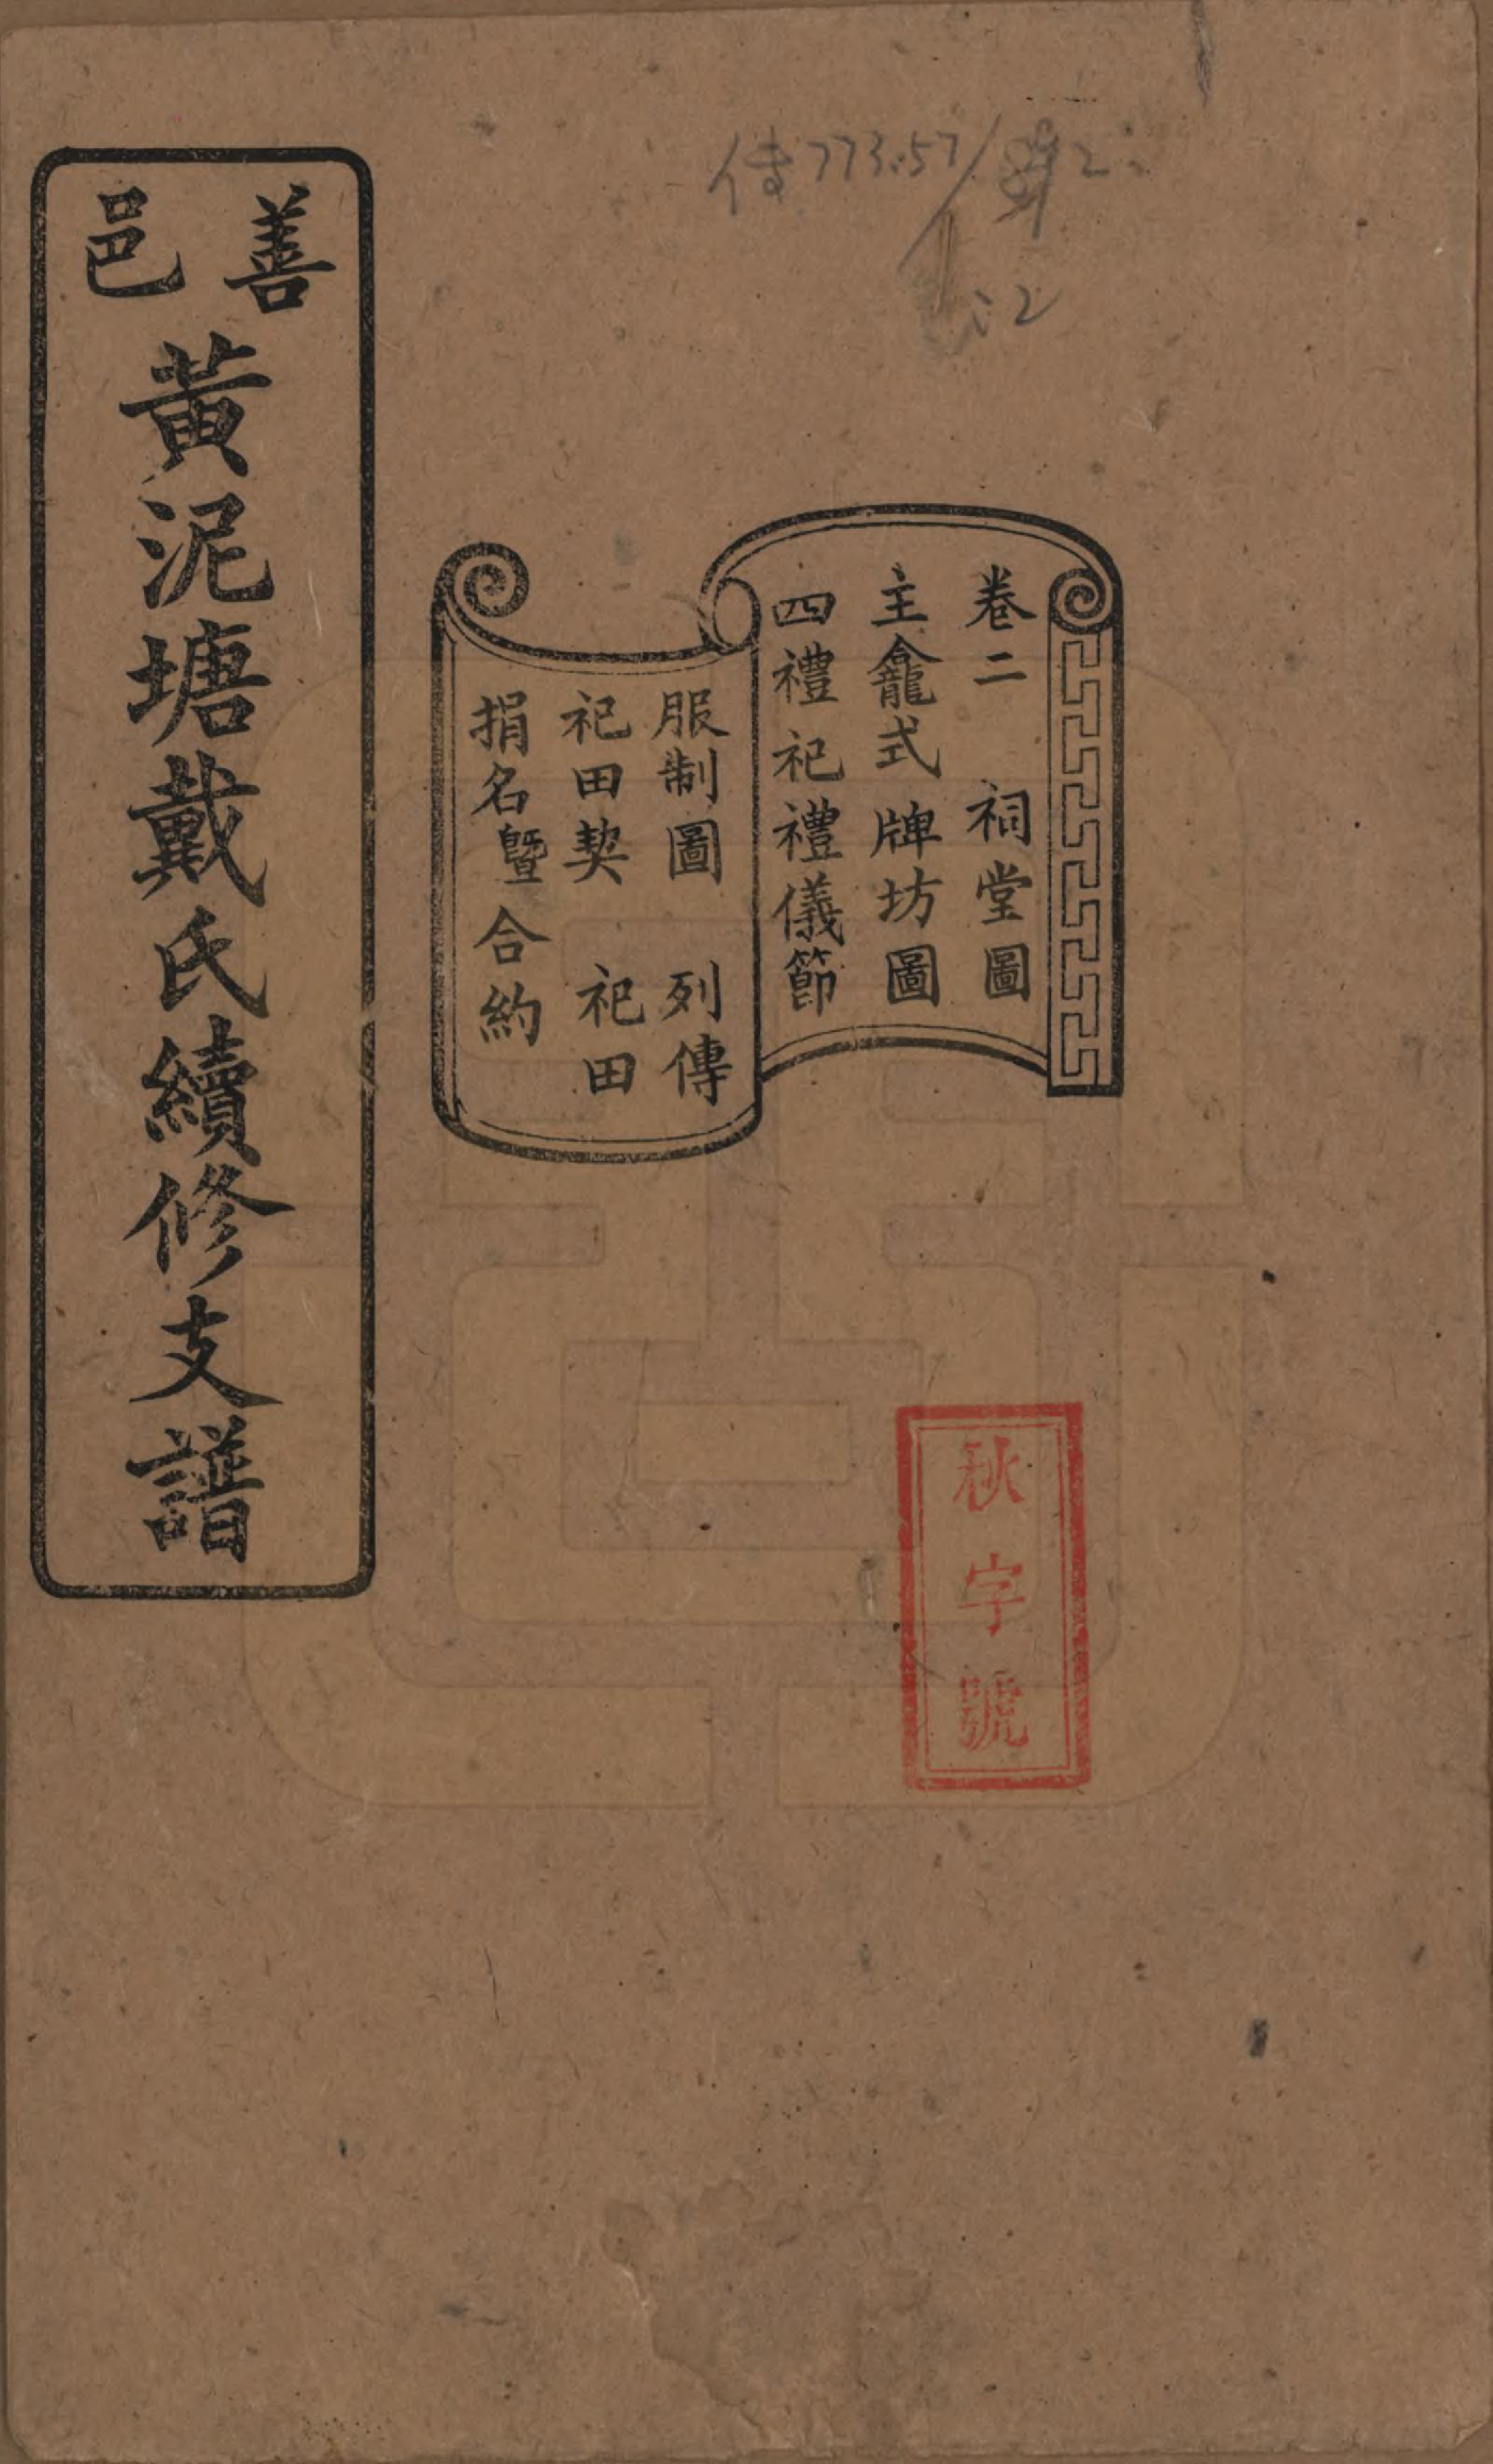 善邑
黃泥塘戴氏續修支譜
卷二 祠堂圖
主龕式 牌坊圖
四禮祀禮儀節
服制圖 列傳
祀田契 祀田
捐名暨合約
秋字號
傳773.57/
:2